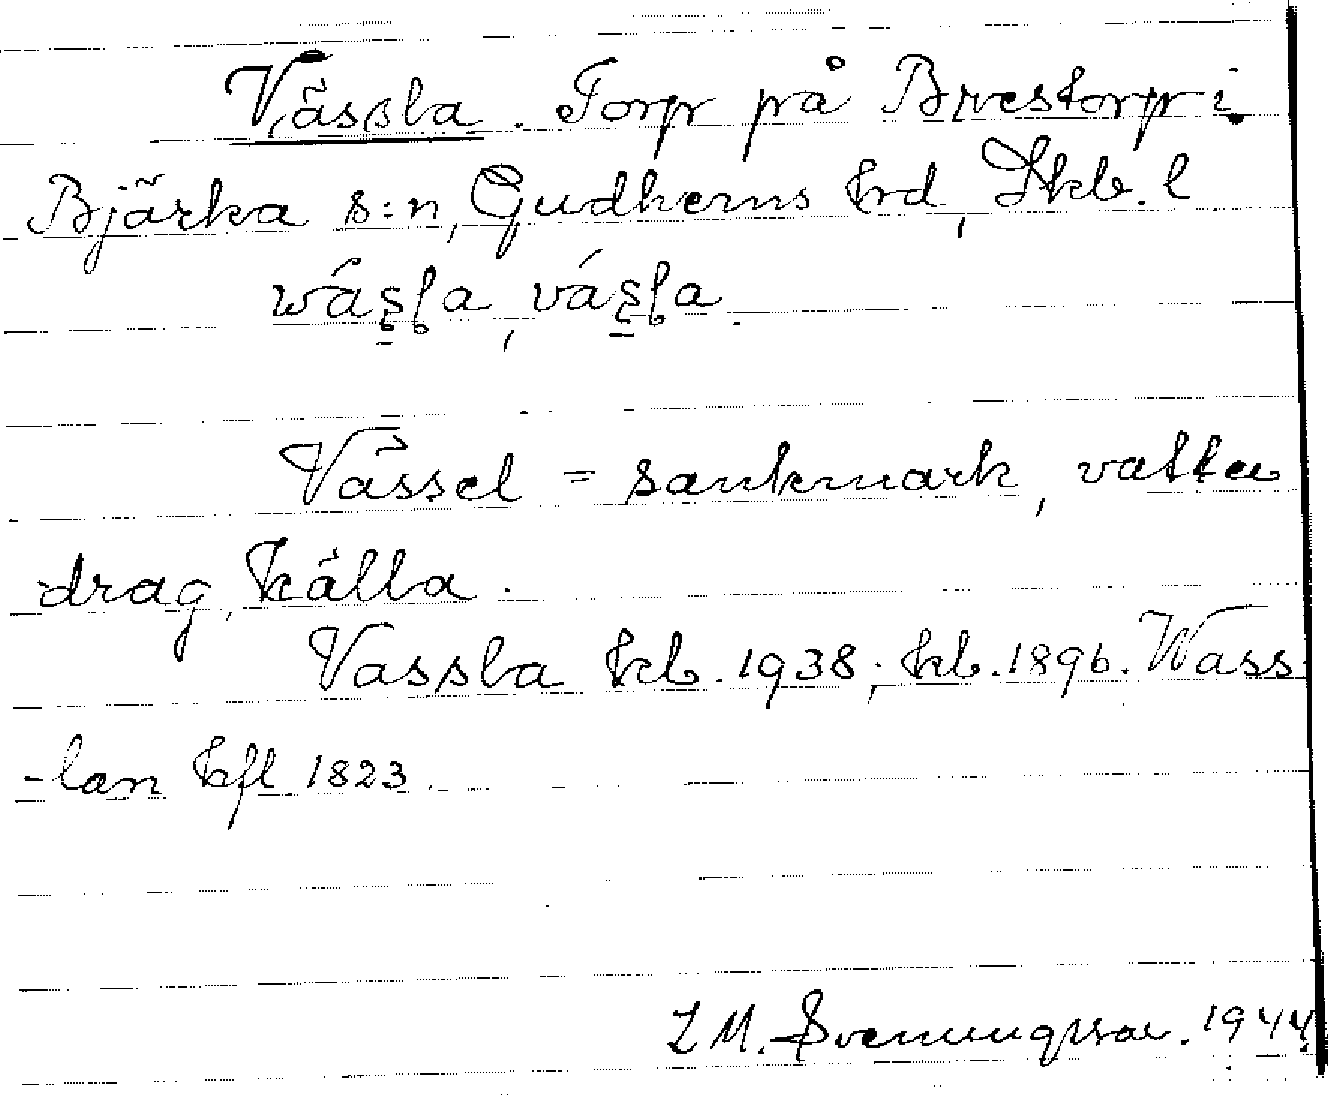 Vässla. Torp på Brestorp i
Bjärka s:n, Gudhems hrd, Skb. l
wásla, vásla.
Vässel = sankmark, vatten
drag, källa.
Vassla kb. 1938; kb. 1896. Wass-
-lan hfl 1823.
L M. Svenungsson. 1944